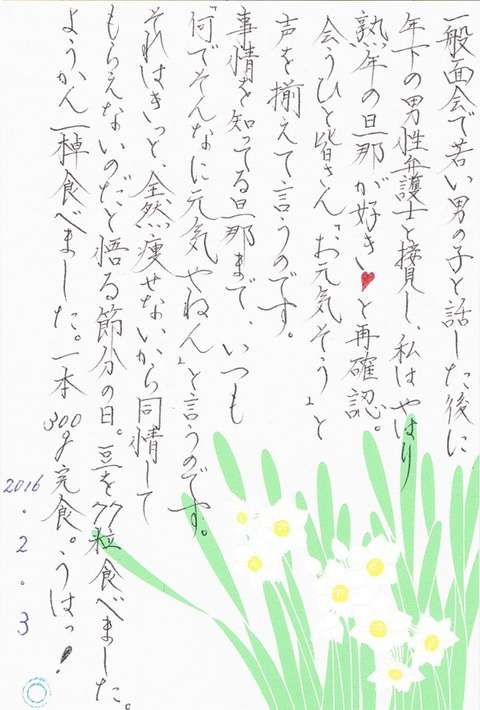 一般面会で若い男の子と話した後に
年下の男性弁護士と接見し、私はやはり
熟年の旦那が好きい♥と再確認。
会うひと皆さん「お元気そう」と
声を揃えて言うのです。
事情を知ってる旦那まで、いつも
「何でそんなに元気やねん」と言うのです。
それはきっと、全然痩せないから同情して
もらえないのだと悟る節分の日。豆を77粒食べました。
ようかん一棹食べました。一本300g完食。うはっ!
2016.2.3